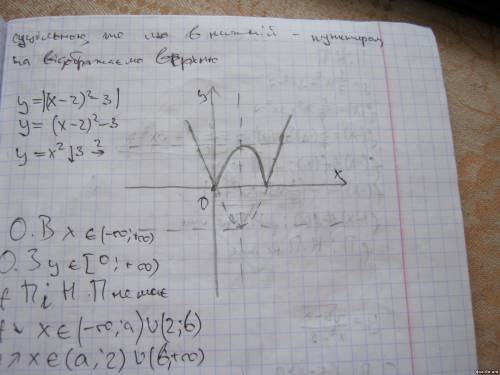 суцільною, те що в нижній - пунктиром
та відображаємо вверхню
y=|(x-2)²-3|
y= (x-2)²-3
y=x² ↓3 2→
y
x
0
О.В x∈(-∞;+∞)
О.З y∈[0;+∞)
П і Н.П немає
↘ x∈(-∞;a)∪(2;b)
↗ x∈(a;2)∪(b;+∞)